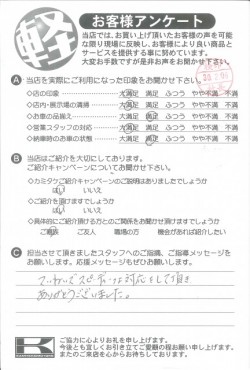 軽
お客様アンケート
当店では、お買い上げ頂いたお客様の声を可能
な限り現場に反映し、お客様により良い商品と
サービスを提供する事に努めています。
大変お手数ですが是非お声をお聞かせ下さい。
A 当店を実際にご利用になった印象をお聞かせ下さい。
◇店の印象 大満足 満足 ふつう やや不満 不満
◇店内・展示場の清掃 大満足 満足 ふつう やや不満 不満
◇お車の品揃え 大満足 満足 ふつう やや不満 不満
◇営業スタッフの対応 大満足 満足 ふつう やや不満 不満
◇納車時のお車の状態 大満足 満足 ふつう やや不満 不満
B 当店はご紹介を大切にしております。
ご紹介キャンペーンについてお聞かせ下さい。
◇カミタケご紹介キャンペーンのご説明はありましたでしょうか
はい いいえ
◇ご紹介を頂けますでしょうか
はい いいえ
◇具体的にご紹介頂ける方とのご関係をお聞かせ頂けますでしょうか
ご親族 ご友人 職場の方 機会があれば紹介したい
C 担当させて頂きましたスタッフへのご指摘、ご指導メッセージを
お願いします。応援メッセージもぜひお願いします。
スピーディーな対応をして頂き
ありがとうございました。
K
ご協力に心よりお礼を申し上げます。
今後とも宜しくお引き立てご愛顧の程お願い申し上げます。
またのご来店を心からお待ちしております。